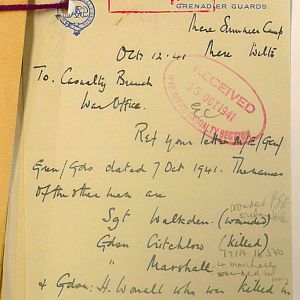 GRENADIER GUARDS
Mere Summer Camp
Oct 12. 41 Mere Wilts
To. Casualty Branch
War Office.
RECEIVED
15 OCT 1941
WAR OFFICE CASUALTY SECTION
Ref your letter /Gen/
Gren/Gds dated 7 Oct 1941. The names
of the other men are
Sgt Walkden. (wounded)
wounded
Gdsn Critchlow (killed)
" Marshall
& Gdsn: H. Worrall who was killed in